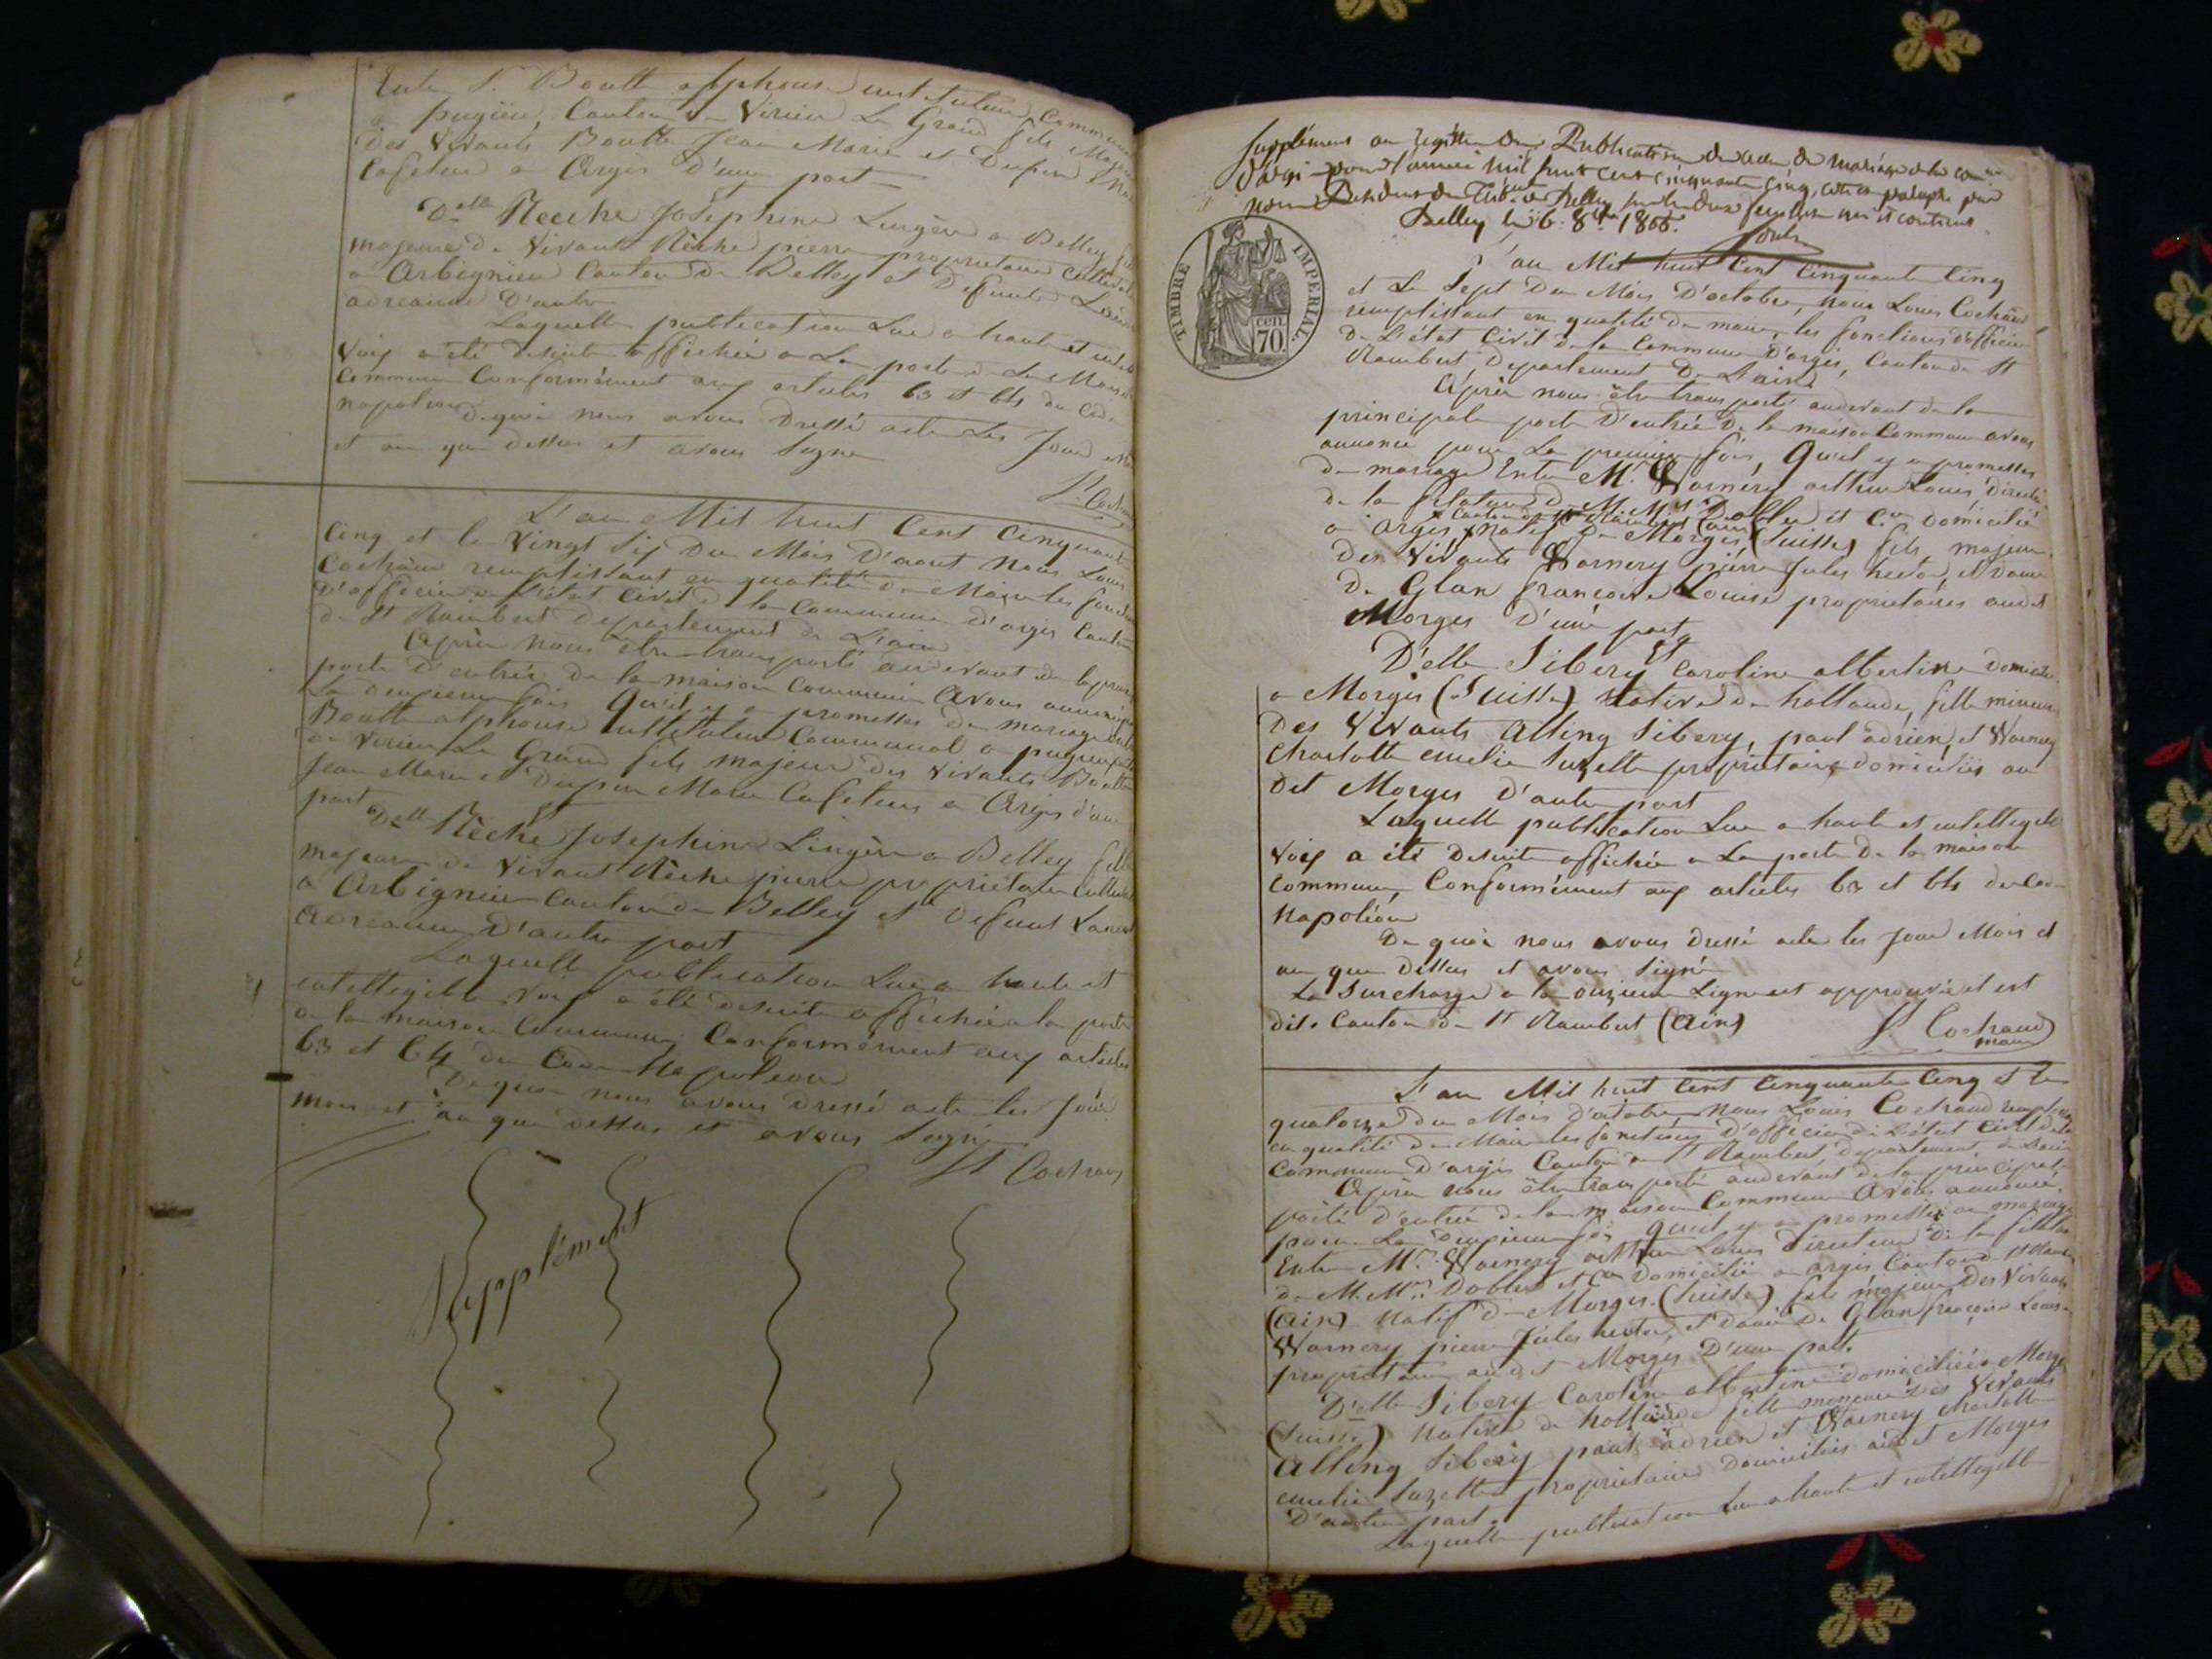 Entre Sr Boutte alphonse instituteur Communal
pugieu, Canton de Virieu Le Grand fils Majeur
des Vivants Boutte Jean Marie et Dupin Marie
Cafetier a Argis D'une part
Et
Delle Reche Josephine Lingère a Belley fille
majeure de Vivant Rèche pierre proprietaire Cultivateur
a Arbignieu Canton de Belley et Defunte
adreanne D'autre
Laquelle publication Lue a haute et intel
Voix a été desuite affichée a La porte de La Maison
Commune Conformément aux articles 63 et 64 du Code
napoleon
De quoi nous avons Dressé acte Les Jour mois
et an que dessus et avons Signé
Lx Cochaud
L'an Mil huit Cent Cinquante
Cinq et le Vingt Six Du Mois D'aout Nous Louis
Cochaud remplissant en qualité de Maire les fonctions
D'officier de l'état Civil de la Commune D'argis Canton
de St Rambert departement de L'ain
Après nous être transporté au devant de la principale
porte D'entrée de la maison Commune Avons annoncé
La deuxieme fois Qu'il y a promesses de mariage entre
Boutte alphonse instituteur Communal a pugieu
de Virieu Le Grand fils majeur des Vivants Boutte
Jean Marie et Dupin Marie Cafetiers a Argis d'une
part
Et
Delle Rèche Josephine Lingère a Belley fille
majeure de Vivant Rèche pierre propriétaire Cultivateur
a Arbignieu Canton de Belley et Defunt
Adreanne D'autre part
Laquelle publication Lue a haute et
intelligible Voix a été desuite affichée a la porte
de la maison Commune Conformément aux articles
63 et 64 du Code Napoleon
De quoi nous avons dressé acte les Jour
mois et an que dessus et avons Signé
Lx Cochaud
Supplément
Supplément au registre des Publications des actes de mariage de la commune
d'argis pour l'année mil huit cent cinquante cinq, coté et paraphé par
nous Président du Tribal de Belley sur les deux feuillets qui il contient
Belley le 6. 8bre 1855.
TIMBRE IMPERIAL.
cen. 70
L'an Mil huit Cent Cinquante Cinq
et Le Sept Du Mois D'octobre, nous Louis Cochaud
remplissant en qualité de maire, les fonctions d'officier
de L'état Civil de la Commune D'argis, Canton de St
Rambert, Departement De L'ain
Après nous être transporté audevant de la
principale porte D'entrée de la maison Commune avons
annoncé pour La premiere fois, Qu'il y a promesses
de mariage Entre Mr. Warnéry arthur Louis, directeur
de la filature de M.Mrs Dobler et Cie domicilié
x Canton de St Rambert (ain)
a argis, x natif de Morges (Suisse) fils majeur
Des Vivants Warnery pierre Jules hector, et Dame
De Glan françoise Louise proprietaires audit
Morges D'une part
Et
D'elle Sibery Caroline albertine domiciliée
a Morges (Suisse) Native de hollande, fille mineure
Des Vivants Alting Sibery, paul adrien, et Warnery
Charlotte emelie Suzette propriétaires domiciliés au
dit Morges D'autre part
Laquelle publication Lue a haute et intelligible
Voix a été desuite affichée a La porte De la maison
Commune, Conformément aux articles 63 et 64 du Code
Napoléon
De quoi nous avons dressé acte les Jour Mois et
an que dessus et avons Signé
La Surcharge a la onzieme Ligne est approuvée et est
dit. Canton de St Rambert (Ain)
Lx Cochaud
maire
L'an Mil huit Cent Cinquante Cinq et le
quatorze du Mois D'octobre Nous Louis Cochaud remplissant
en qualité de Maire les fonctions D'officier de L'état Civil de la
Commune D'argis Canton de St Rambert departement de L'ain
Après nous être transporté audevant de la principale
porte d'entrée de la maison Commune Avons annoncé
pour La deuxieme fois qu'il y a promesses de mariage
Entre Mr. Warnery arthur Louis Directeur de la filature
de M.Mrs Dobler et Cie domicilié a argis Canton de St Rambert
(ain) Natif de Morges (Suisse) fils majeur Des Vivants
Warnery pierre Jules hector, et Dame De Glan françoise Louise
proprietaires audit Morges D'une part.
Et
D'elle Sibery Caroline albertine domiciliée a Morges
(Suisse) Native de hollande fille mineure des Vivants
Alting Sibery paul adrien et Warnery Charlotte
emelie Suzette proprietaires domiciliés audit Morges
D'autre part.
Laquelle publication Lue a haute et intelligible